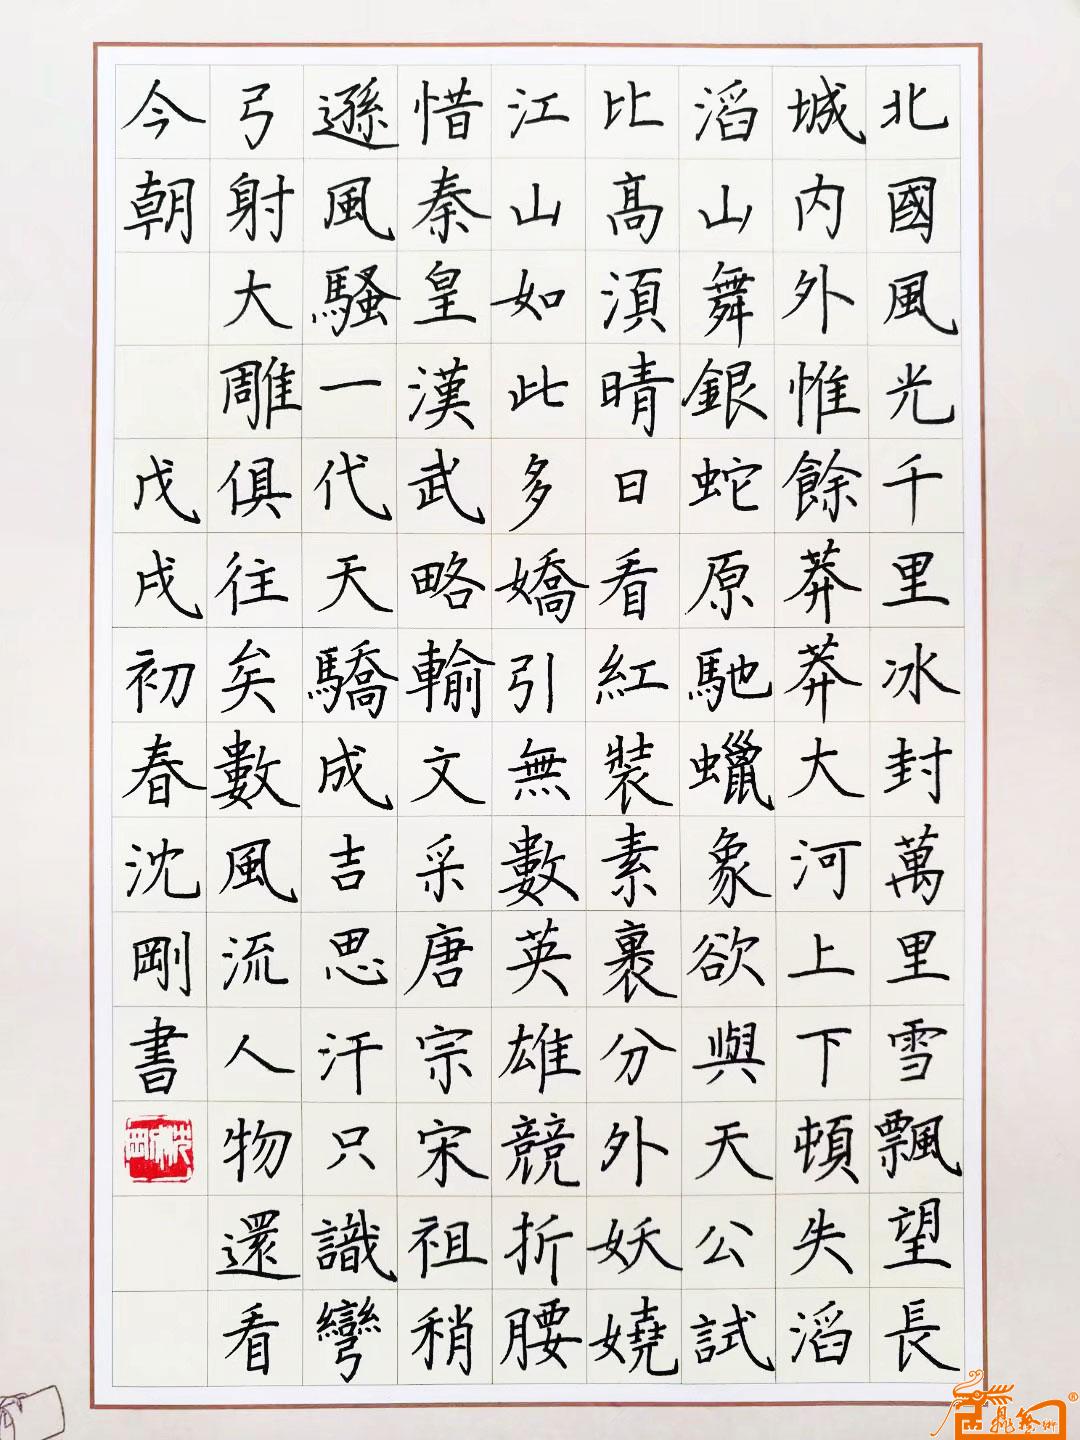 北國風光千里冰封萬里雪飄望長
城内外惟餘莽莽大河上下頓失滔
滔山舞銀蛇原馳蠟象欲與天公試
比髙湏晴日看紅裝素裹分外妖嬈
江山如此多嬌引無數英雄競折腰
惜秦皇漢武略輸文采唐宗宋祖稍
遜風騷一代天驕成吉思汗只識彎
弓射大雕俱往矣數風流人物還看
今朝 戊戌初春沈剛書